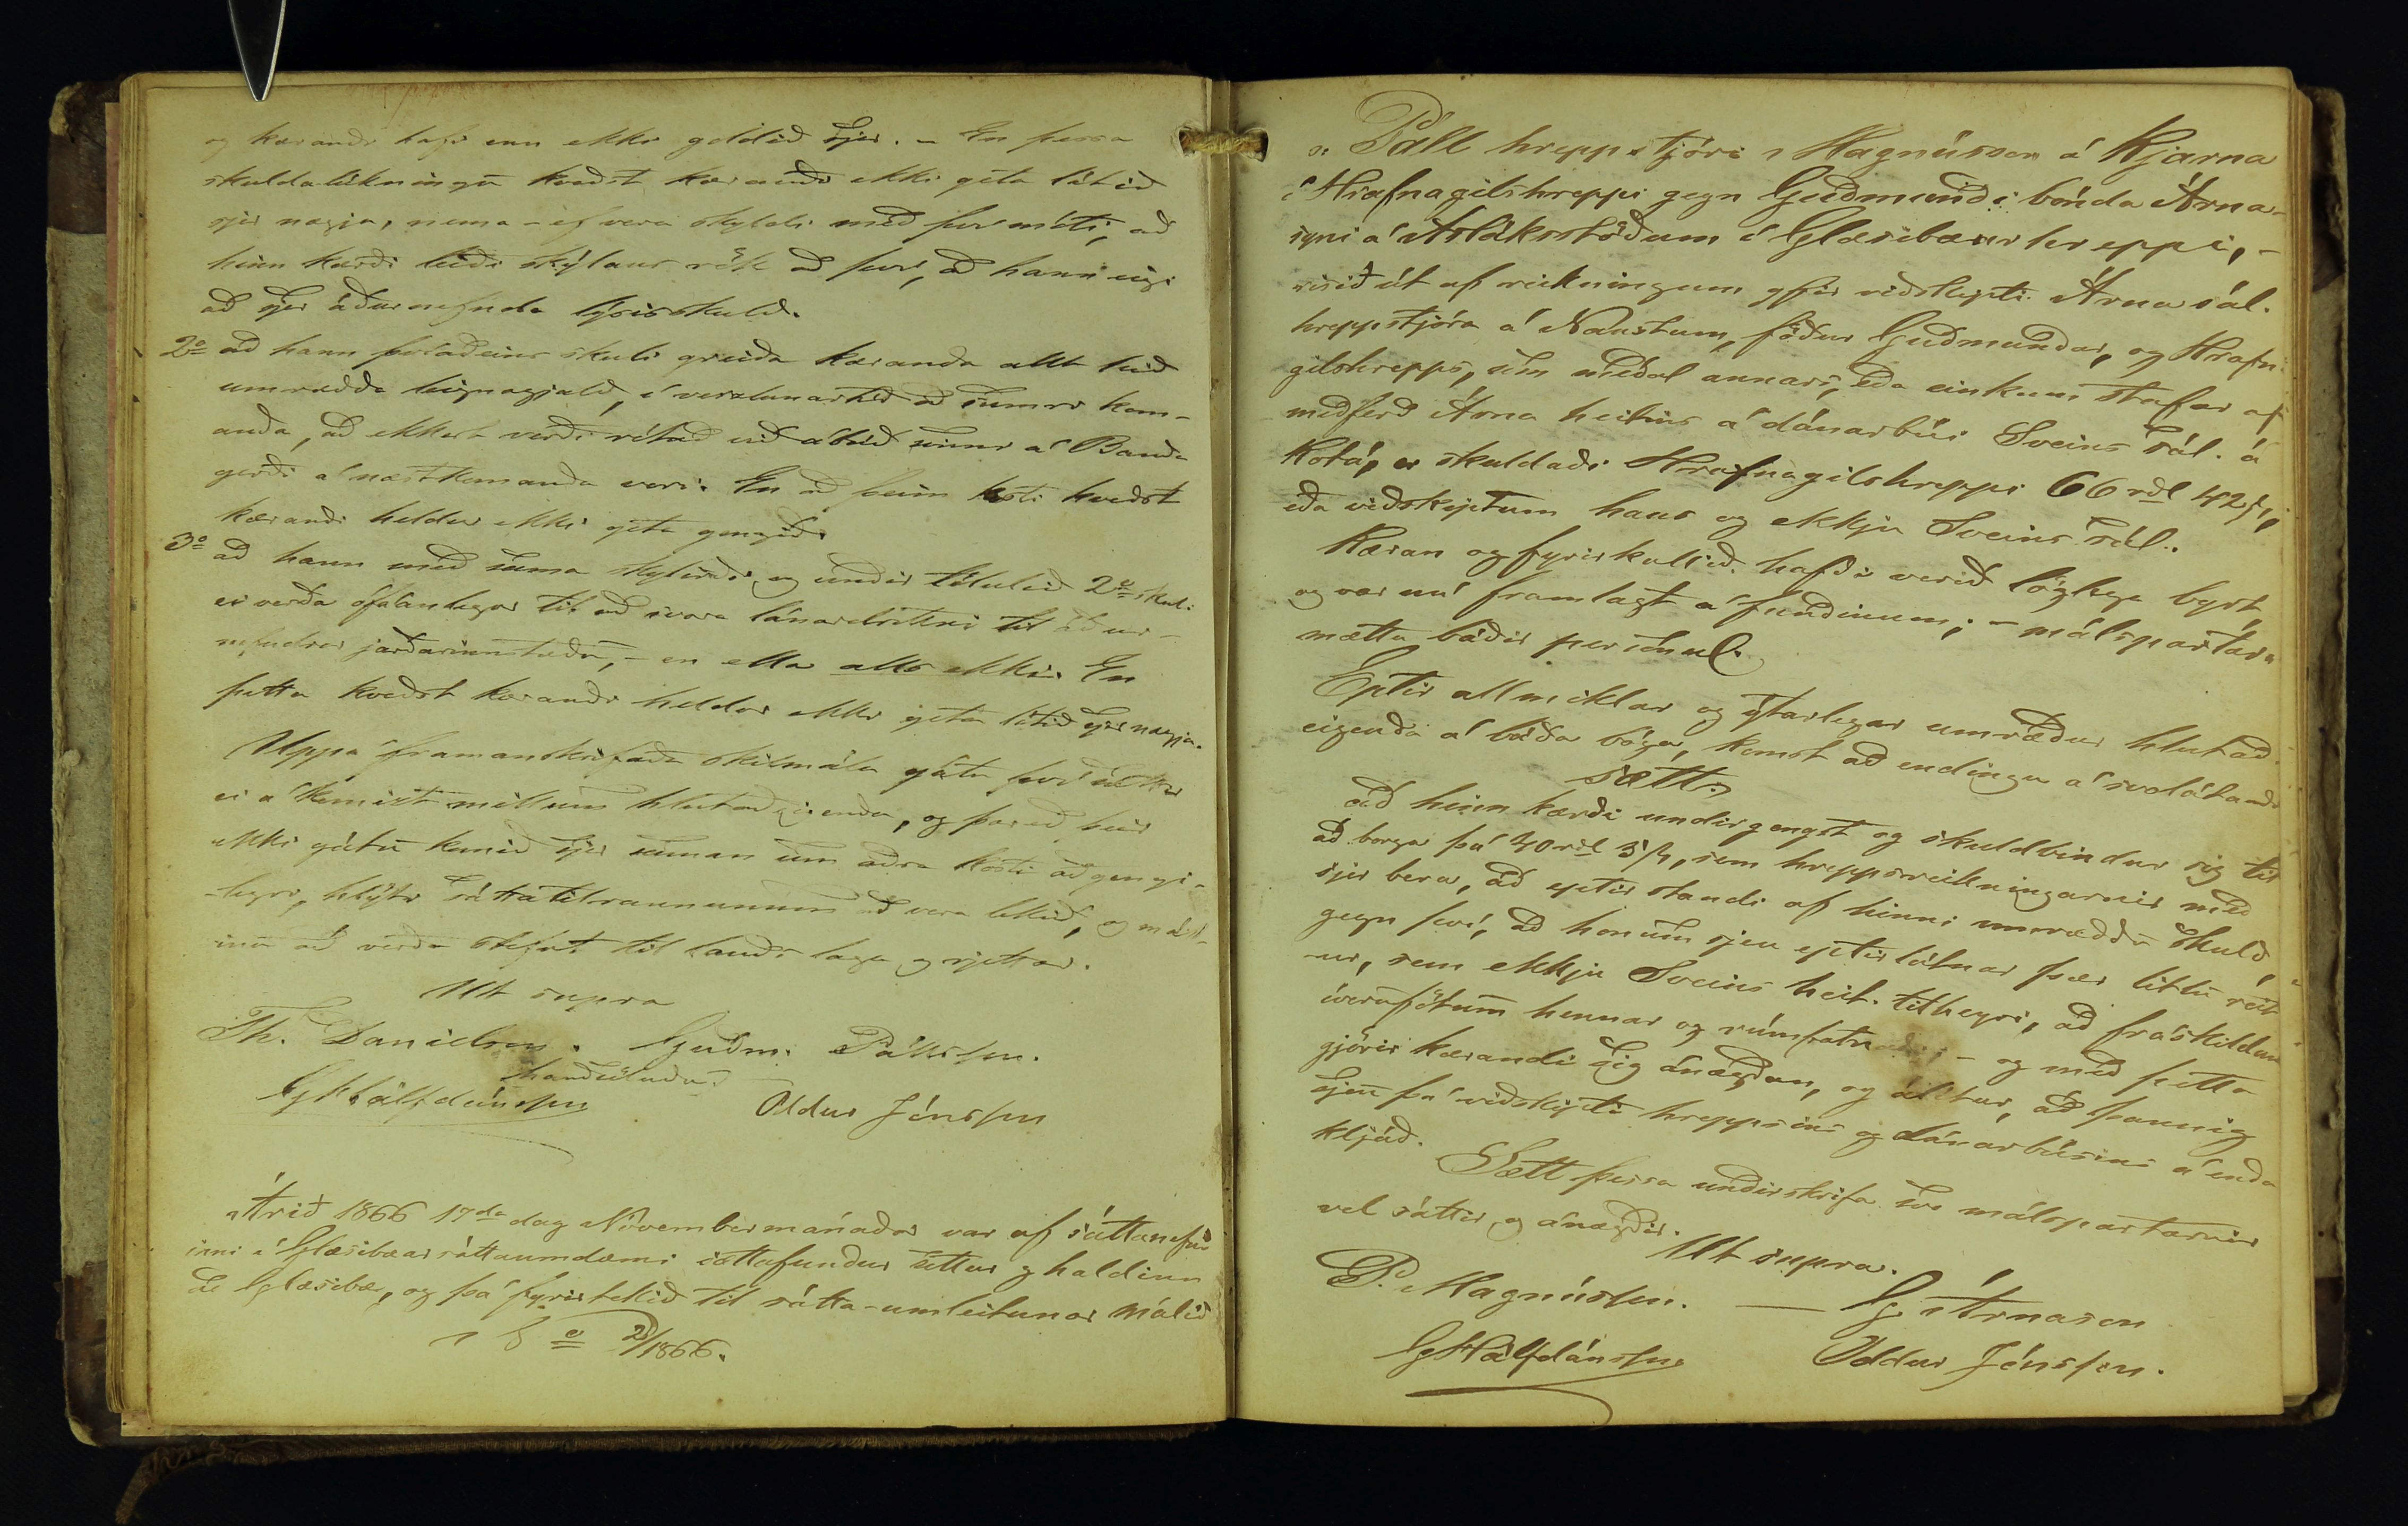 og kærandi hafi enn ekki goldið sjer. – En þessa
skuldalúkningu kveðst kærandi ekki geta látið
sjer nægja, nema – ef vera skyldi með því móti, að
hinn kærði leiði skýlaus rök að því, að hann eigi
að sjer áðurnefnda lýsisskuld.
2º að hann þvíaðeins skuli greiða kæranda allt hið
umrædda leignagjald, í verzlunartíð að sumri kom-
anda, að ekkert verði róttað við ábúð sinni á Banda
gerði á næstkomanda vori. En að þeim kosti kveðst
kærandi heldur ekki geta gengið.
3º að hann með sama skilirði, og undir tölulið 2º skuli
ei verða ófáanlegur til að svara lánardrottni til áður-
nefndrar jarðarinnstæðu, – en ella alls ekki. En
þetta kveðst kærandi heldur ekki geta látið sjer nægja.
Uppá framanskrifaða skilmála gátu því sættir
ei á komizt millum hlutaðeigenda, og þareð þeir
ekki gátu komið sjer saman um aðra kosti aðgengi-
legri, hlýtur sáttatilraununum að vera lokið, og mál-
inu að verða skotið til lands laga og rjettar.
Ut supra
Th. Danielsen. Guðm. Pálsson.
handsalað
G Hálfdánsson Oddur Jónsson
Árið 1866 17da dag Nóvembermánaðar var af sáttanefnd
inni í Glæsibæar sáttaumdæmi sáttafundur settur og haldinn
að Glæsibæ, og þá fyrirtekið til sátta-umleitunar málið
/1866.
Páll hreppstjóri Magnússon á Kjarna
í Hrafnagilshreppi gegn Guðmundi bónda Árna-
syni á Ásláksstöðum í Glæsibæarhreppi, –
risið út af reikningum yfir viðskipti Árna sál.
hreppstjóra á Naustum, föður Guðmundar, og Hrafn-
gilshrepps, sem meðal annars, eða einkum stafar af
meðferð Árna heitins á dánarbúi Sveins sál. á
Kotá, er skuldaði Hrafnagilshreppi 66 rdl 42 s,
eða viðskiptum hans og ekkju Sveins sál.
Kæran og fyrirkallið hafði verið löglega byrt,
og var nú framlagt á fundinum; – málspartar
mættu báðir personul.
Eptir allmiklar og ýtarlegar umræður hlutað-
eigenda á báða bóga, komst að endingu á svolátandi
sætt:
að hinn kærði undirgengst og skuldbindur sig til
að borga þá 40 rdl 5 s, sem hreppsreikningarnir með
sjer bera, að eptir standi af hinni umræddu skuld,
gegn því, að honum sjeu eptirlátnar þær litlu reit-
ur, sem ekkju Sveins heit. tilheyri, að fráskildum
íverufötum hennar og rúmfatnaði; – og með þetta
gjörir kærandi sig ánægðan, og álítur, að þannig
sjeu þá viðskipti hreppsins og dánarbúsins á enda
kljáð.
Sætt þessa undirskrifa svo málspartarnir
vel sáttir og ánægðir.
Ut supra.
P. Magnússon. — G Árnason
G Hálfdánsson Oddur Jónsson.